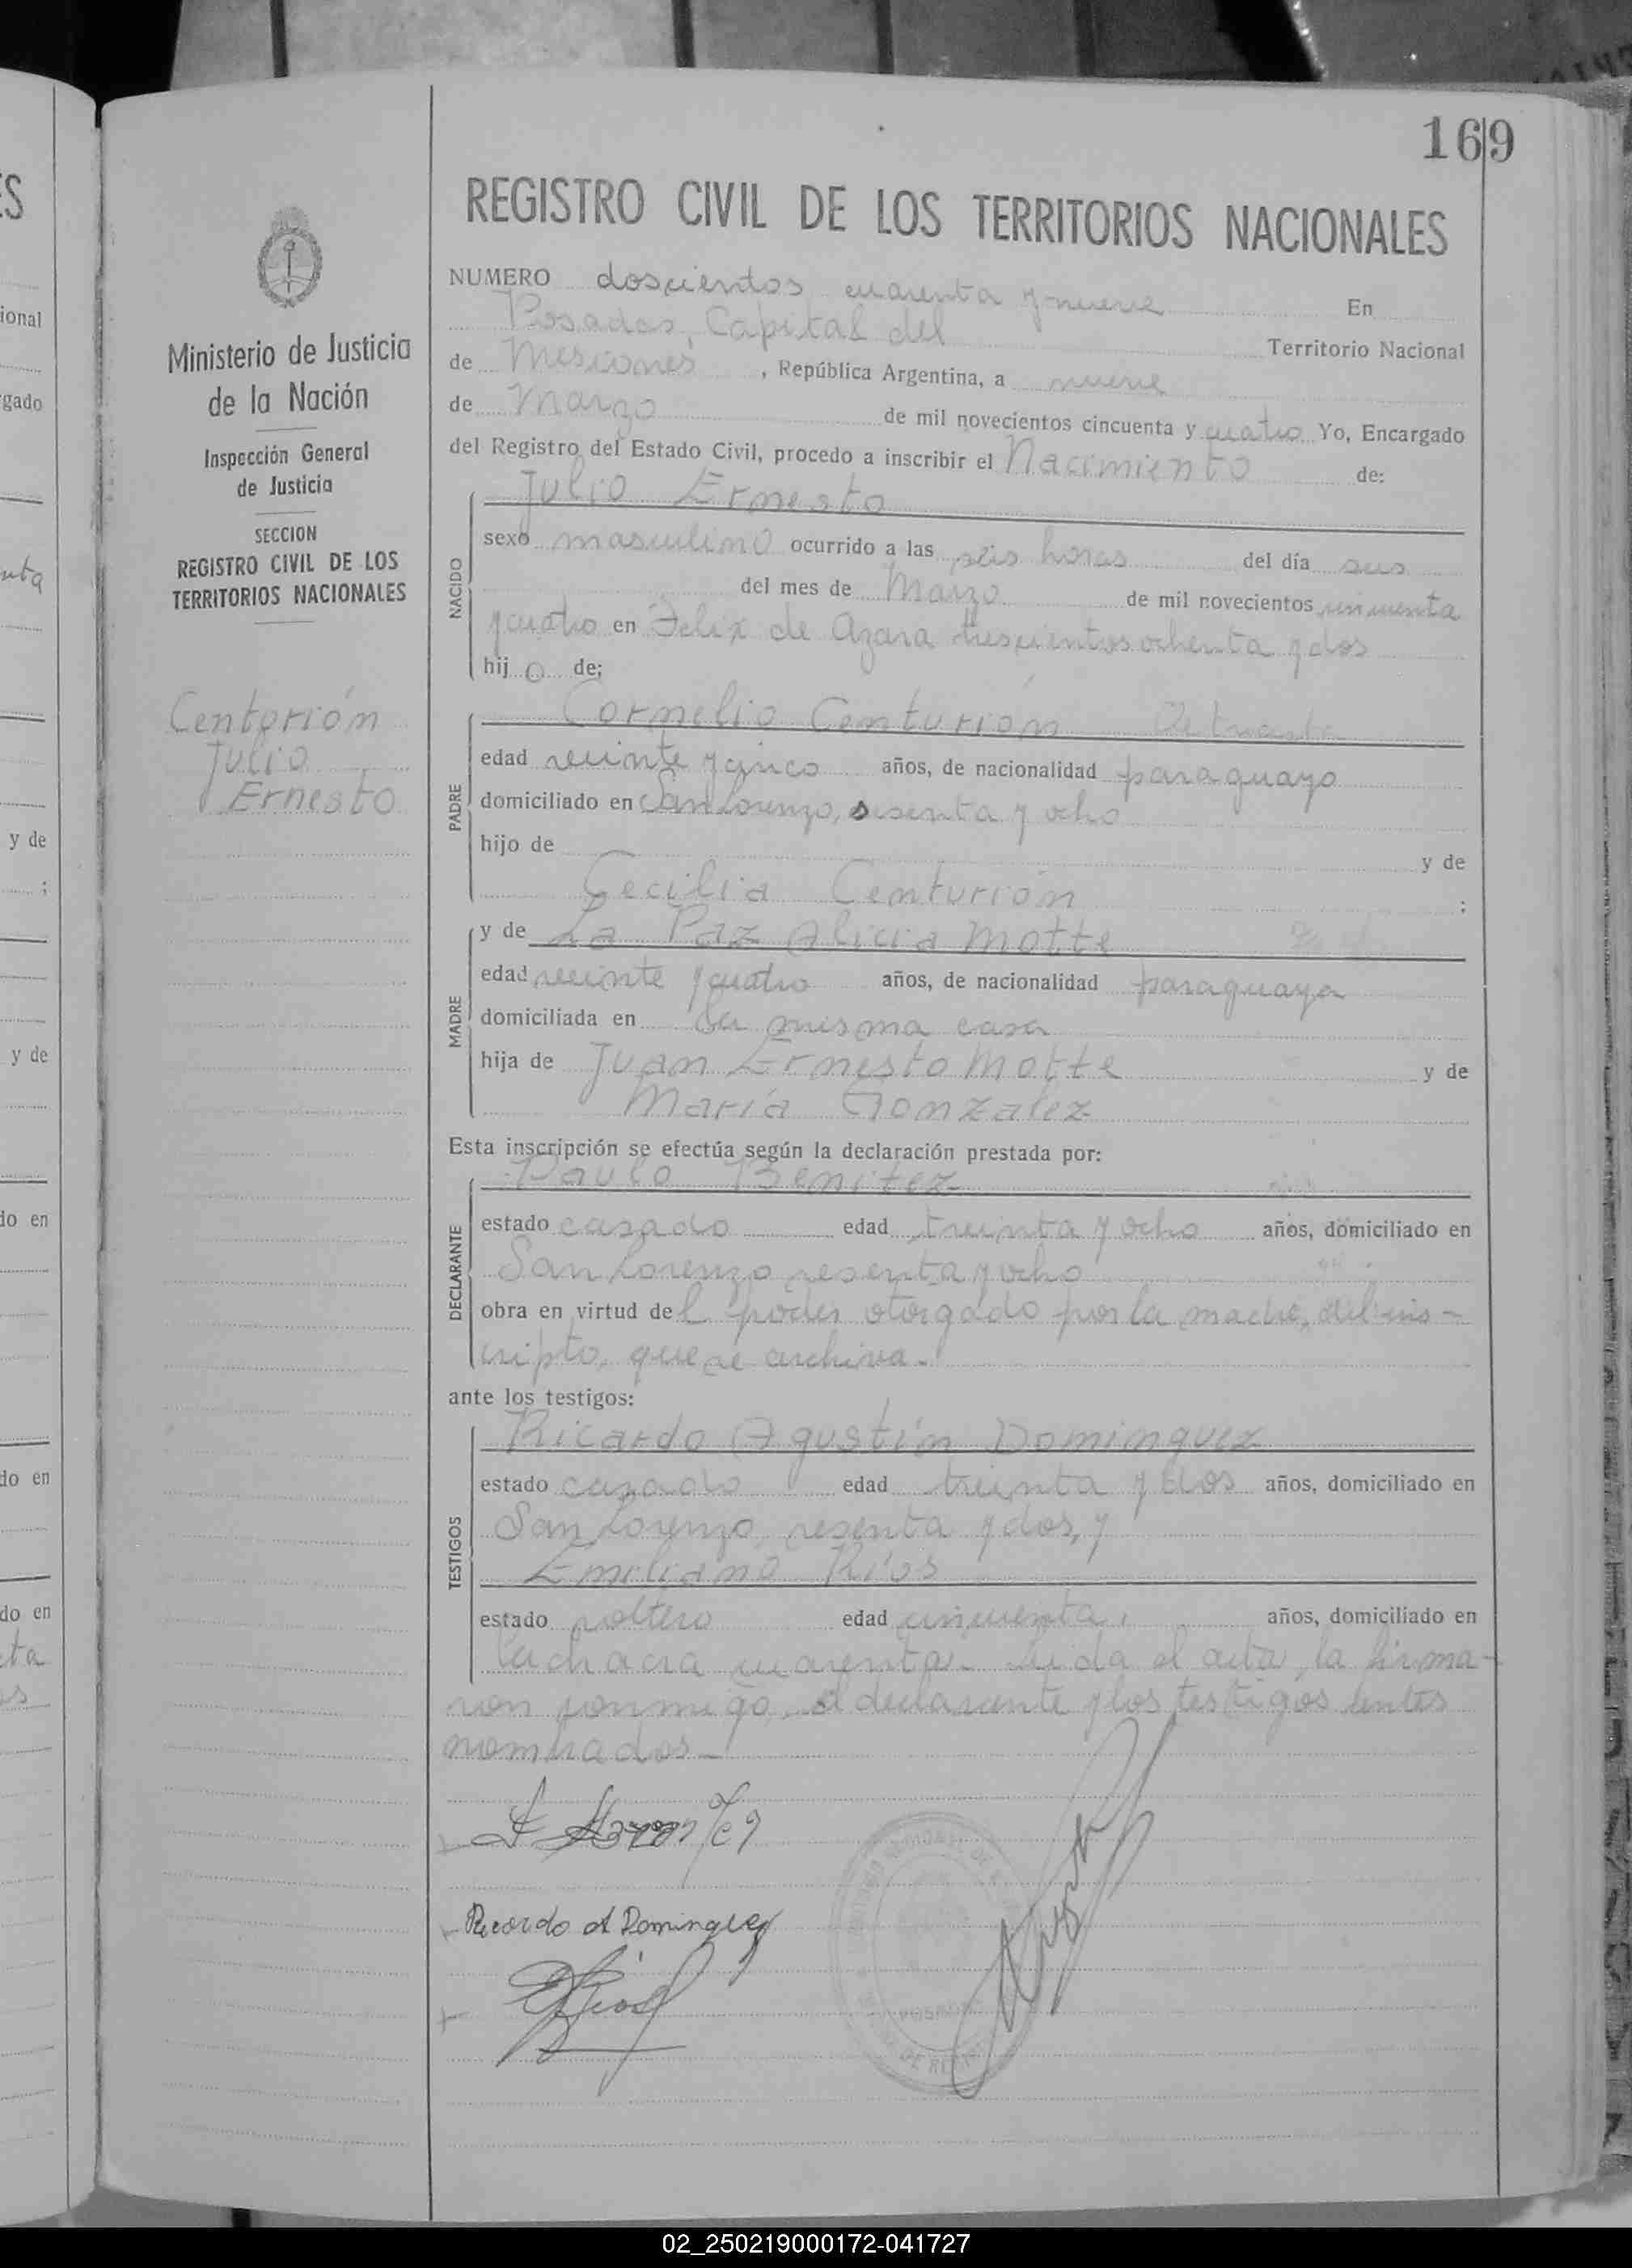 169
REGISTRO CIVIL DE LOS TERRITORIOS NACIONALES
Ministerio de Justicia
de la Nación
Inspección General
de Justicia
SECCION
REGISTRO CIVIL DE LOS
TERRITORIOS NACIONALES
Centurión
Julio
Ernesto
NUMERO doscientos cuarenta y nueve En
Posadas, Capital del Territorio Nacional
de Misiones, República Argentina, a nueve
de Marzo de mil novecientos cincuenta y cuatro Yo, Encargado
del Registro del Estado Civil, procedo a inscribir el Nacimiento de:
Julio Ernesto
NACIDO
sexo masculino ocurrido a las seis horas del día seis
del mes de Marzo de mil novecientos cincuenta
y cuatro en Felix de Azara trescientos ochenta y dos
hijo de;
Cornelio Centurión
PADRE
edad veinte y cinco años, de nacionalidad paraguayo
domiciliado en San Lorenzo, sesenta y ocho
hijo de y de
Cecilia Centurión ;
y de La Paz Alicia Motte
MADRE
edad veinte y cuatro años, de nacionalidad paraguaya
domiciliada en la misma casa
hija de Juan Ernesto Motte y de
María Gonzalez
Esta inscripción se efectúa según la declaración prestada por:
Paulo Benitez
DECLARANTE
estado casado edad treinta y ocho años, domiciliado en
San Lorenzo sesenta y ocho
obra en virtud del poder otorgado por la madre, del ins-
cripto, que se archiva.
ante los testigos:
Ricardo Agustín Dominguez
TESTIGOS
estado casado edad treinta y dos años, domiciliado en
San Lorenzo, sesenta y dos, y
Emiliano Ríos
estado soltero edad cincuenta, años, domiciliado en
la chacra cuarenta. Leida el acta, la firma-
ron conmigo, el declarante y los testigos antes
nombrados.
Ricardo A Dominguez
E Rios
POSADAS
S
ional
gado
nta
y de
;
y de
do en
do en
do en
ta
os
02_250219000172-041727